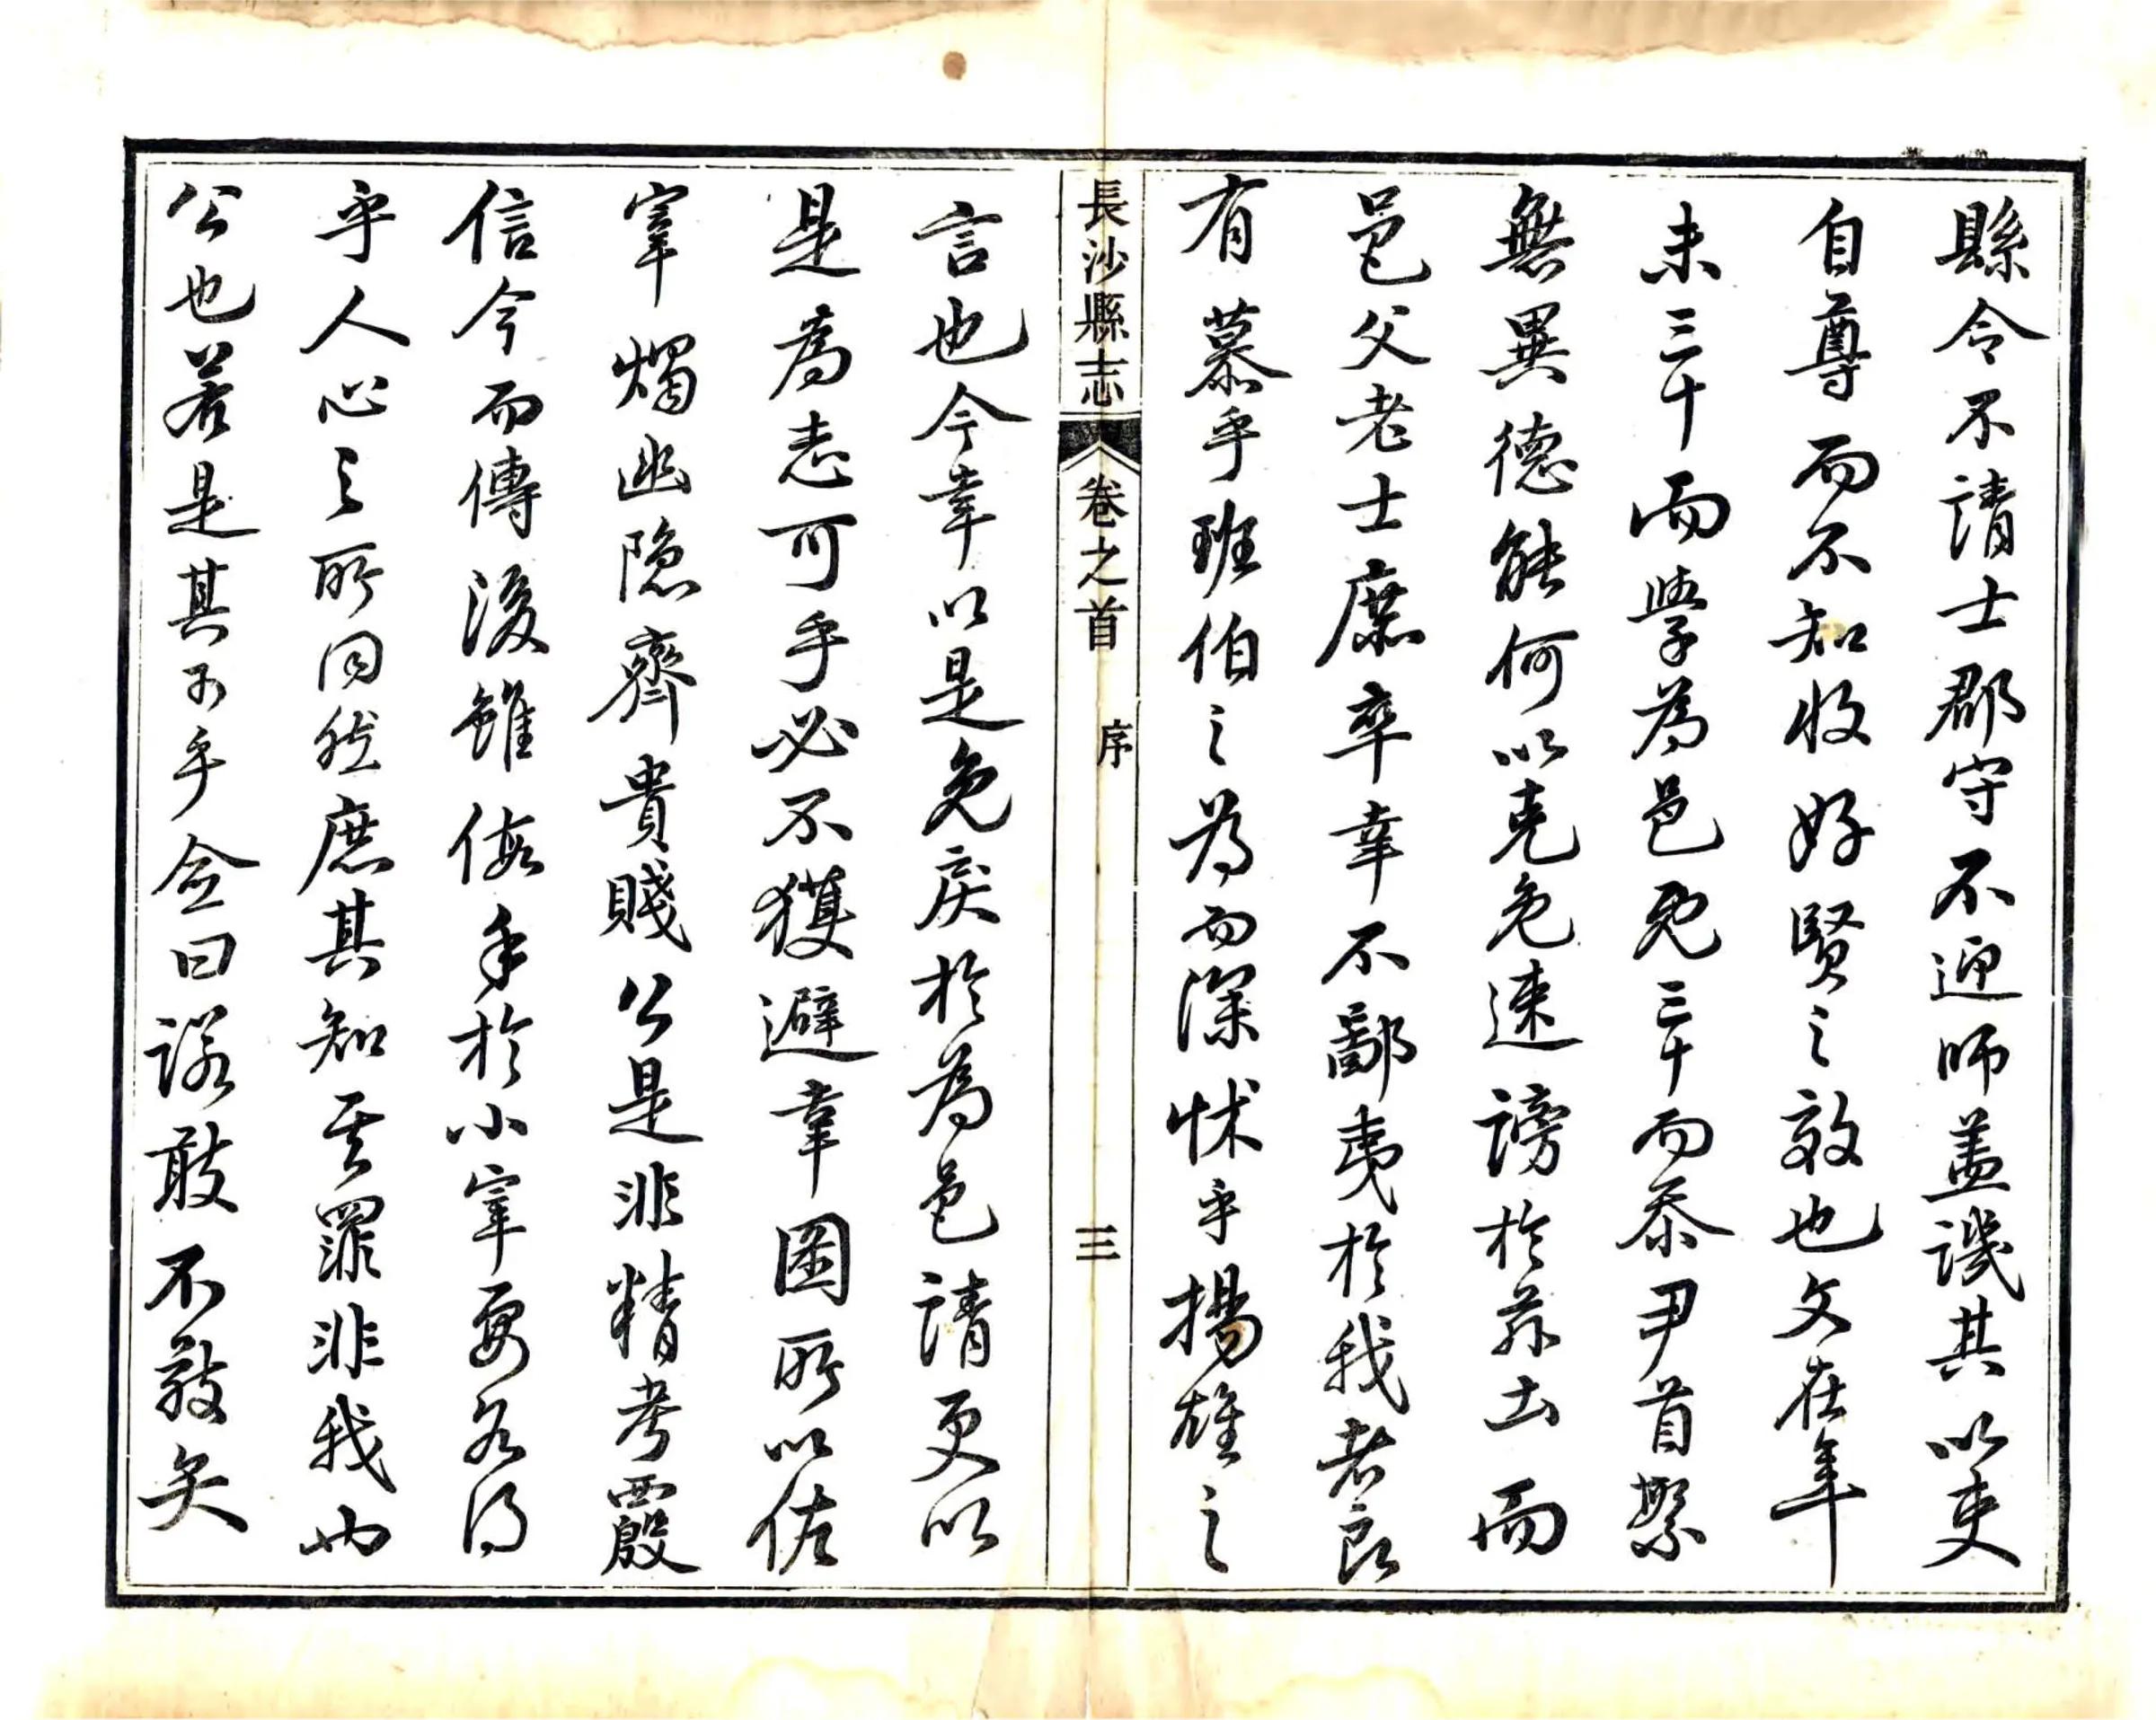 縣令不請士郡守不迎師蓋譏其以吏
自尊而不知收好賢之效也文在年
未三十而學為邑既三十而忝尹首繁
無異德能何以克免速謗於茲土而
邑父老士庶卒幸不鄙夷於我者良
有慕乎班伯之為而深怵乎揚雄之
長沙縣志 卷之首 序 三
言也今幸以是免戾於為邑請更以
是為志可乎必不獲避辜圖所以佐
宰燭幽隱齊貴賤公是非精考覈
信今而傳後雖假手於小宰要各得
乎人心之所同然庶其知我罪非我也
公也若是其可乎僉曰諾敢不敬矣